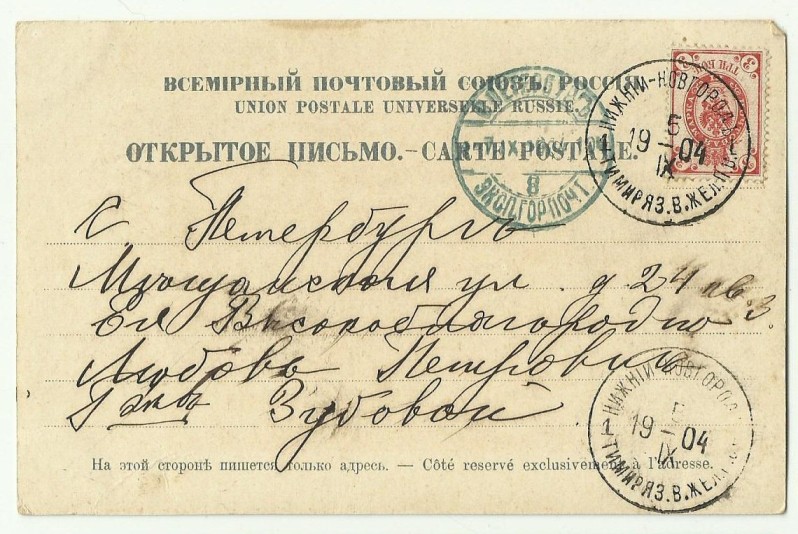 ВСЕМІРНЫЙ ПОЧТОВЫЙ СОЮЗЪ. РОССІЯ
UNION POSTALE UNIVERSELLE RUSSIE.
ОТКРЫТОЕ ПИСЬМО. — CARTE POSTALE.
ТРИ КОП
3
НИЖНІЙ-НОВГОРОДЪ
5
1 19-04 1
IX
ТИМИРЯЗ.В.ЖЕЛ.П.
8
ЭКСП.ГОР.ПОЧТ.
С Петербургъ
Мѣщанская ул д 24 кв. 3.
Ея Высокоблагородію
Любовь Петровнѣ
Г-жѣ Зубовой
НИЖНІЙ-НОВГОРОДЪ
5
1 19-04
IX
ТИМИРЯЗ.В.ЖЕЛ.П.
На этой сторонѣ пишется только адресъ. — Côté reservé exclusivement à l'adresse.